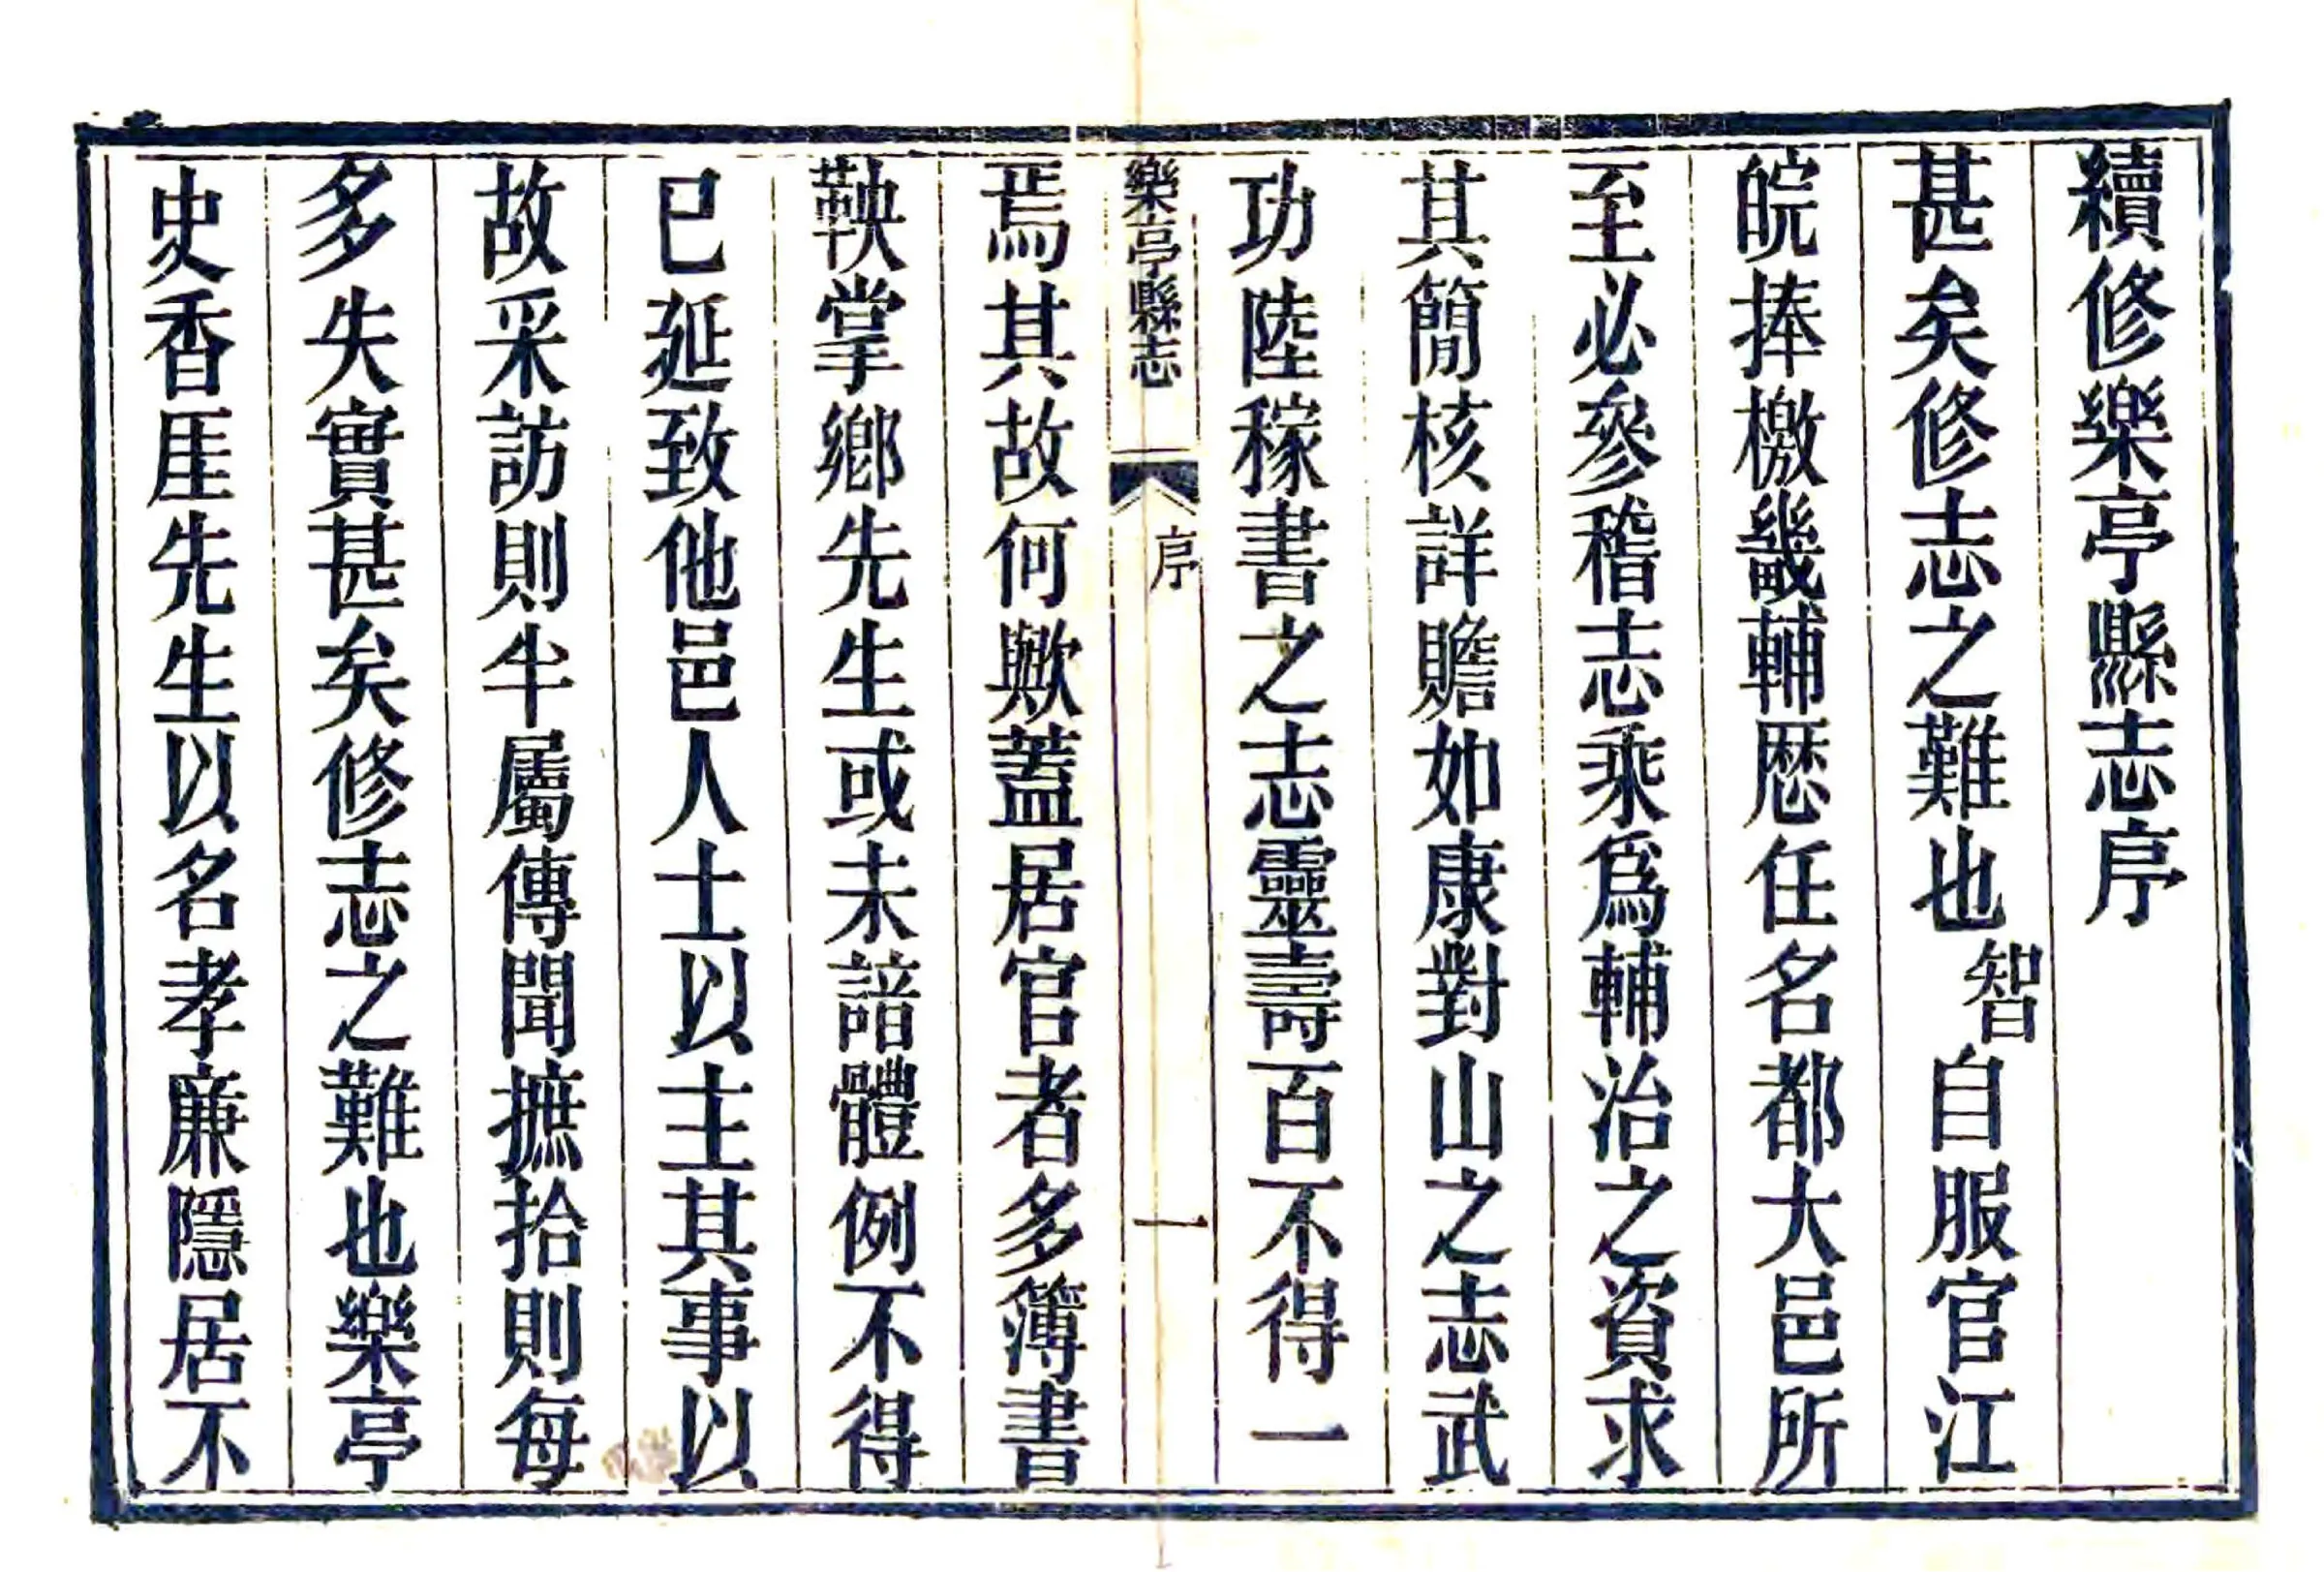 續修樂亭縣志序
甚矣修志之難也智自服官江
皖捧檄畿輔歷任名都大邑所
至必參稽志乘爲輔治之資求
其簡核詳贍如康對山之志武
功陸稼書之志靈壽百不得一
樂亭縣志
序
一
焉其故何歟蓋居官者多簿書
鞅掌鄉先生或未諳體例不得
已延致他邑人士以主其事以
故采訪則半屬傳聞摭拾則每
多失實甚矣修志之難也樂亭
史香厓先生以名孝廉隱居不